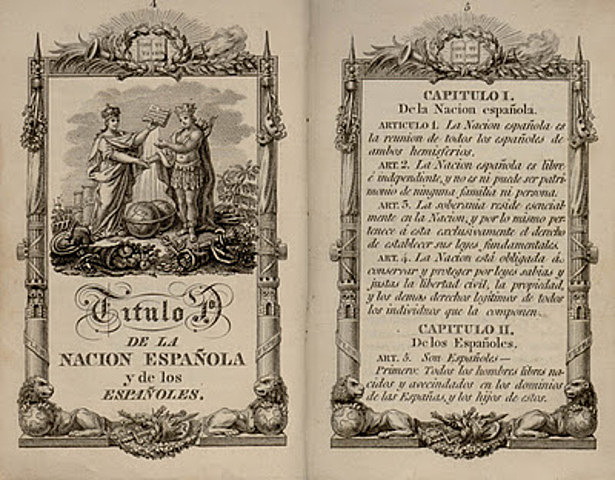 4
Titulo 1º
DE LA
NACION ESPAÑOLA
y de los
ESPAÑOLES.
5
CAPITULO I.
De la Nacion española.
ARTICULO 1. La Nacion española es
la reunion de todos los españoles de
ambos hemisferios.
ART. 2. La Nacion española es libre
é independiente, y no es ni puede ser patri-
monio de ninguna familia ni persona.
ART. 3. La soberanía reside esencial-
mente en la Nacion, y por lo mismo per-
tenece á esta exclusivamente el derecho
de establecer sus leyes fundamentales.
ART. 4. La Nacion está obligada á
conservar y proteger por leyes sabias y
justas la libertad civil, la propiedad,
y los demas derechos legítimos de todos
los individuos que la componen.
CAPITULO II.
De los Españoles.
ART. 5. Son Españoles—
Primero: Todos los hombres libres na-
cidos y avecindados en los dominios
de las Españas, y los hijos de estos.